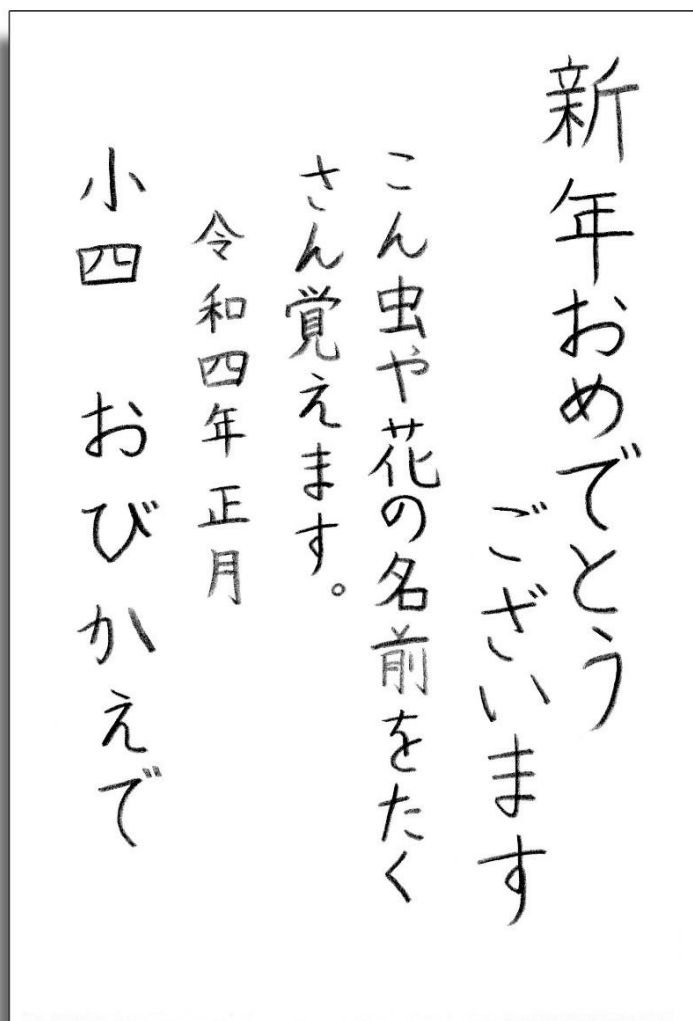 新年おめでとう
ございます
こん虫や花の名前をたく
さん覚えます。
令和四年正月
小四　おびかえで